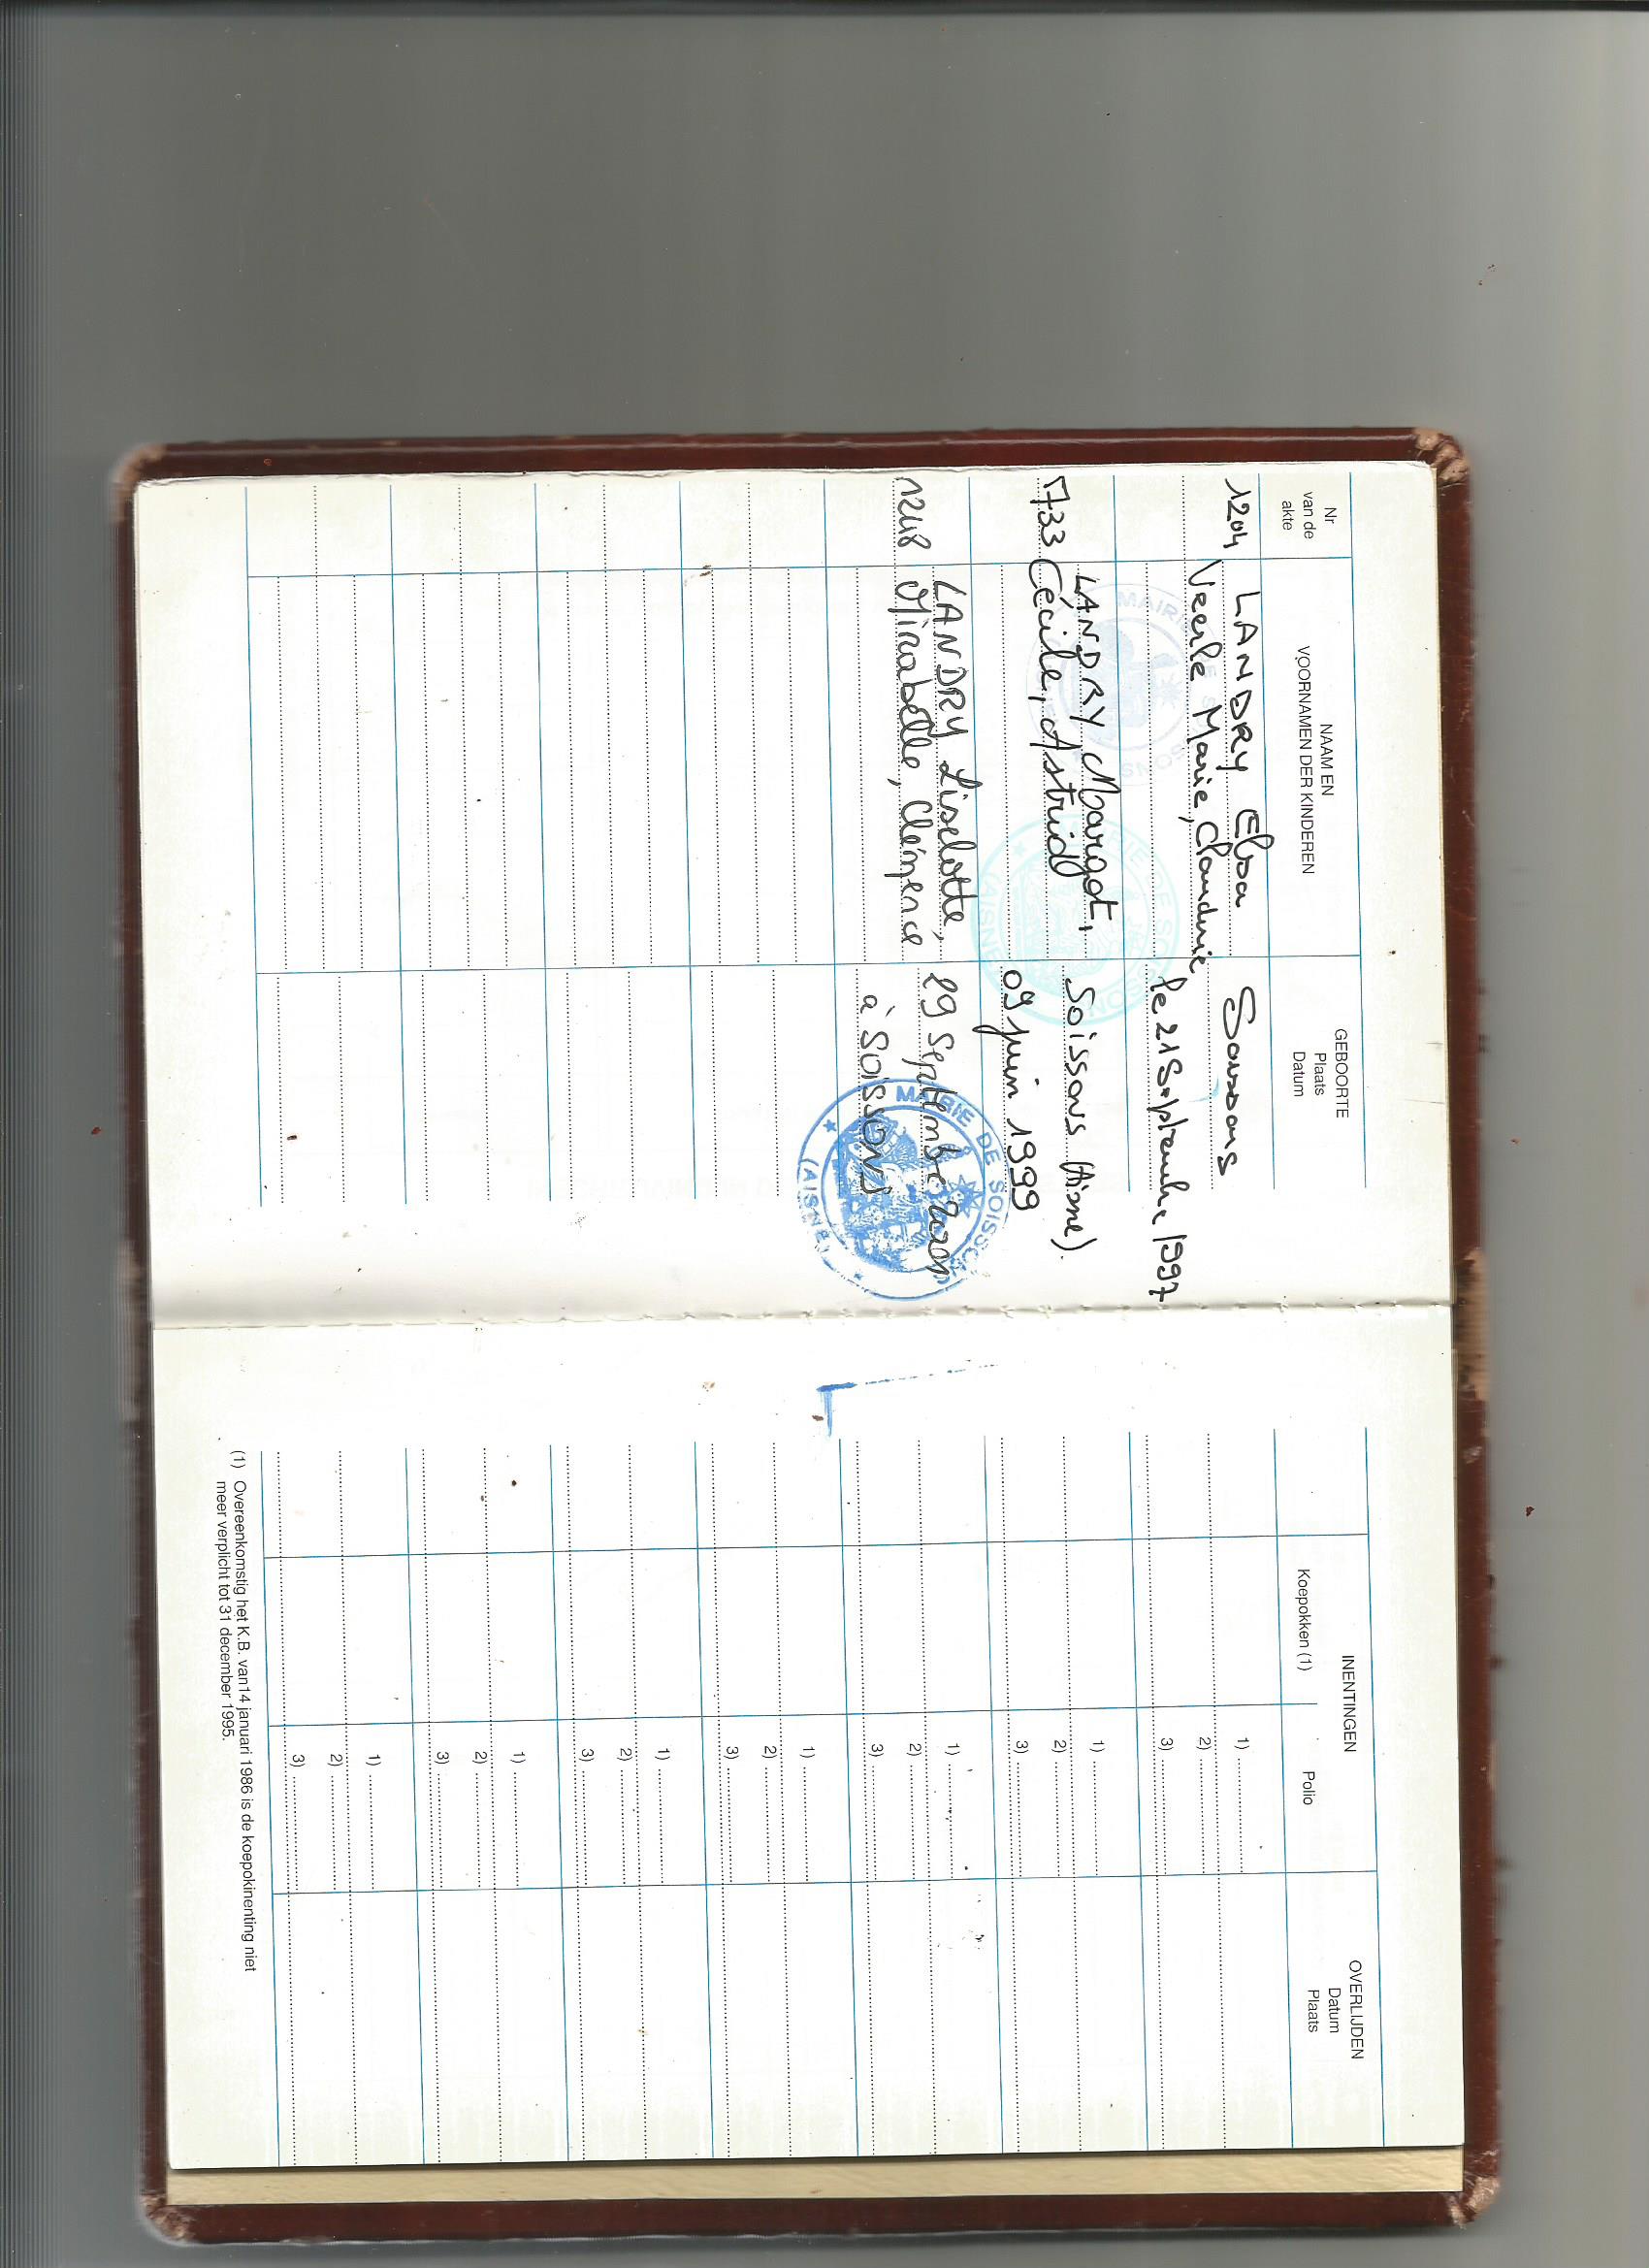 Nr
van de
akte
NAAM EN
VOORNAMEN DER KINDEREN
GEBOORTE
Plaats
Datum
1204
LANDRY Elsa
Veerle Marie, Claudine
Soissons
le 21 Septembre 1997
733
LANDRY Margot,
Cécile, Astrid
Soissons (Aisne).
09 juin 1999
1248
LANDRY Liselotte,
Mirabelle, Clémence
29 Septembre
à Soissons
MAIRIE DE SOISSONS
(AISNE)
INENTINGEN
Koepokken (1)
Polio
OVERLIJDEN
Datum
Plaats
1)
2)
3)
1)
2)
3)
1)
2)
3)
1)
2)
3)
1)
2)
3)
1)
2)
3)
1)
2)
3)
(1) Overeenkomstig het K.B. van14 januari 1986 is de koepokinenting niet
meer verplicht tot 31 december 1995.